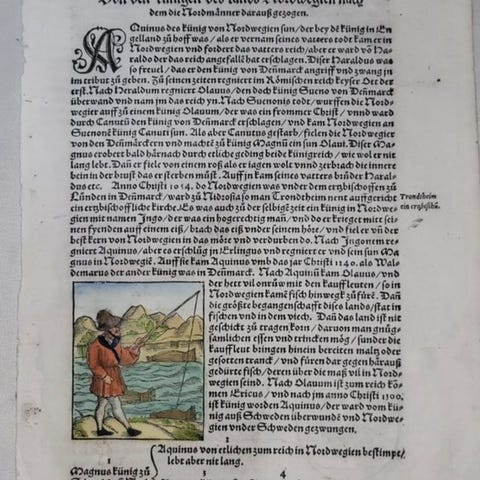 Von den künigen des lands Nordwegien nach
dem die Nordmänner darauß gezogen.
AQuinus des künig von Nordwegien sun/der bey dē künig in En
gelland zů hoff was/ als er vernam seines vatters todt kam er in
Nordwegien vnd fordert das vatters reich/ aber er ward vō Ha-
raldo der das reich angefallē hat erschlagen. Diser Haraldus was
so freuel/ das er den künig von Deñmarck angriff vnd zwang jn
im tribut zů geben. Zů seinen zeiten regniert im Römischen reich keyser Ott der
erst. Nach Heraldum regniert Olauus/ den doch künig Sueno von Deñmarck
überwand vnd nam jm das reich yn. Nach Suenonis todt/ wurffen die Nord-
wegier auff zů einem künig Olauum/ der was ein frommer Christ/ vnnd ward
durch Canutū den künig von Deñmarck erschlagen/ vnd kam Nordwegien an
Suenonē künig Canuti sun. Als aber Canutus gestarb/ fielen die Nordwegier
von den Dēnmärckern vnd machtē zů künig Magnū ein sun Olaui. Diser Ma-
gnus erobert bald härnach durch erliche geding beide künigreich/ wie wol er nit
lang lebt. Dan er fiele von einem roß als er iagen wolt vnnd zerbrach die innere
bein in der brust das er sterben müst. Auff jn kam seines vatters brůder Haral-
dus etc. Anno Christi 1054. do Nordwegien was vnder dem ertzbischoffen zů
Lunden in Deñmarck/ ward zů Nidrosia so man Trondtheim nent auffgericht
ein ertzbischoffliche kirch. Es was auch zů der selbigē zeit ein künig in Nordwe-
gien mit namen Ingo/ der was ein hogerechtig man/ vnd do er krieget mitt sei-
nen fyenden auff einem eiß/ brach das eiß vnder seinem höre/ vnd fiel er vñ der
best kern von Nordwegien in das möre vnd verdurben do. Nach Ingonem re-
gniert Aquinus/ aber es erschlůg jn Erlingus vnd regniert er vnd sein sun Ma-
gnus in Nordwegiē. Auff sie kam Aquinus vnd das jar Christi 1140. als Wal-
demarus der ander künig was in Deñmarck. Nach Aquinū kam Olauus/ vnd
der hett vil onrůw mit den kauffleuten/ so in
Nordwegien kamē fisch hinwegk zů fürē. Dañ
die größte begangenschafft dises lands/ stat in
fischen vnd in dem viech. Dañ das land ist nit
geschickt zů tragen korn/ daruon man gnůg-
samlichen essen vnd trincken mög/ sunder die
kauffleut bringen hinein bereiten maltz oder
gesotten tranck/ vnd füren dar gegen härauß
gedürte fisch/ deren über die maß vil in Nord-
wegien seind. Nach Olauum ist zum reich kō-
men Ericus/ vnd nach jm anno Christi 1300.
ist künig worden Aquinus/ der ward vom kü-
nig auß Schweden überwundē vnd Nordwe-
gien vnder Schweden gezwungen.
Trondtheim
ein ertzbistū.
1
Aquinus von etlichen zum reich in Nordwegien bestimpt/
lebt aber nit lang.
1 3 4
Magnus künig zů